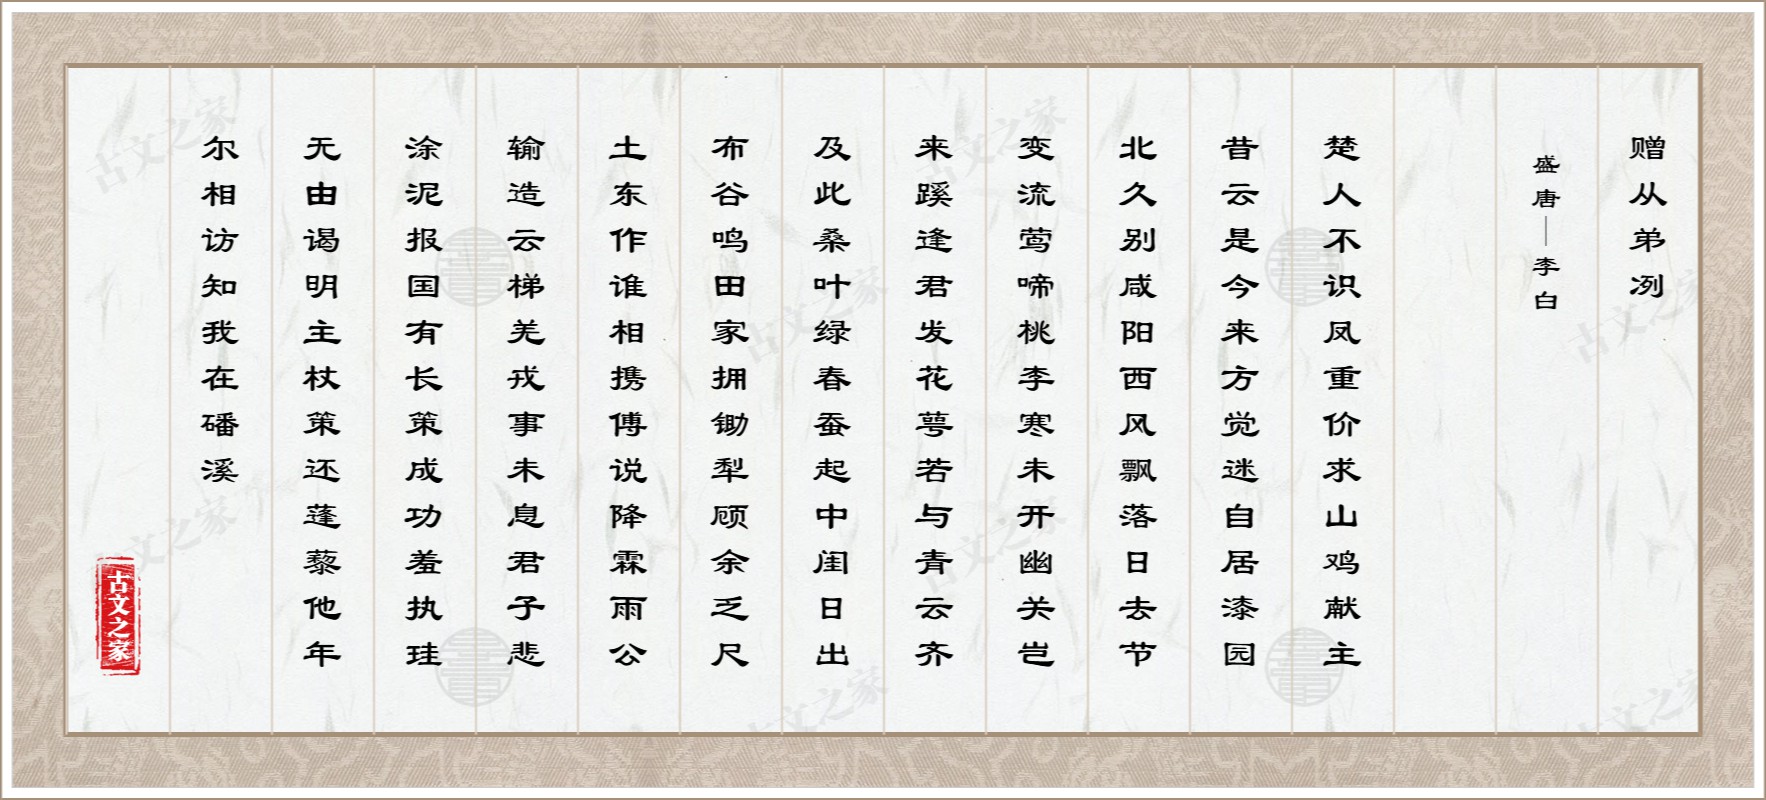 赠从弟冽
盛唐—李白
楚人不识凤重价求山鸡献主
昔云是今来方觉迷自居漆园
北久别咸阳西风飘落日去节
变流莺啼桃李寒未开幽关岂
来蹊逢君发花萼若与青云齐
及此桑叶绿春蚕起中闺日出
布谷鸣田家拥锄犁顾余乏尺
土东作谁相携傅说降霖雨公
输造云梯羌戎事未息君子悲
涂泥报国有长策成功羞执珪
无由谒明主杖策还蓬藜他年
尔相访知我在磻溪
古文之家